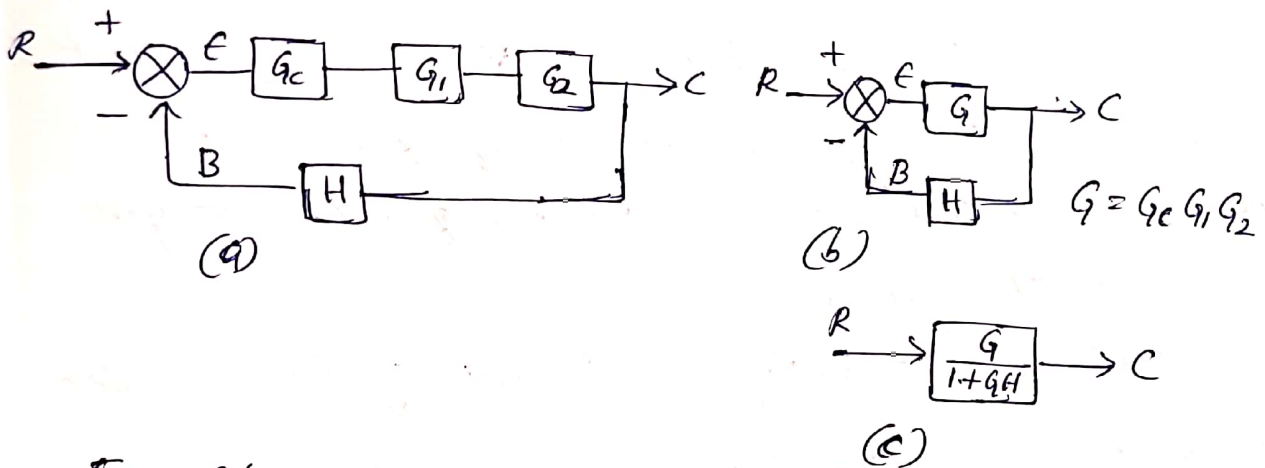 R + E Gc G1 G2 C
− B H
(a)
R + E G C
− B H
G = Gc G1 G2
(b)
R G/1+GH C
(c)